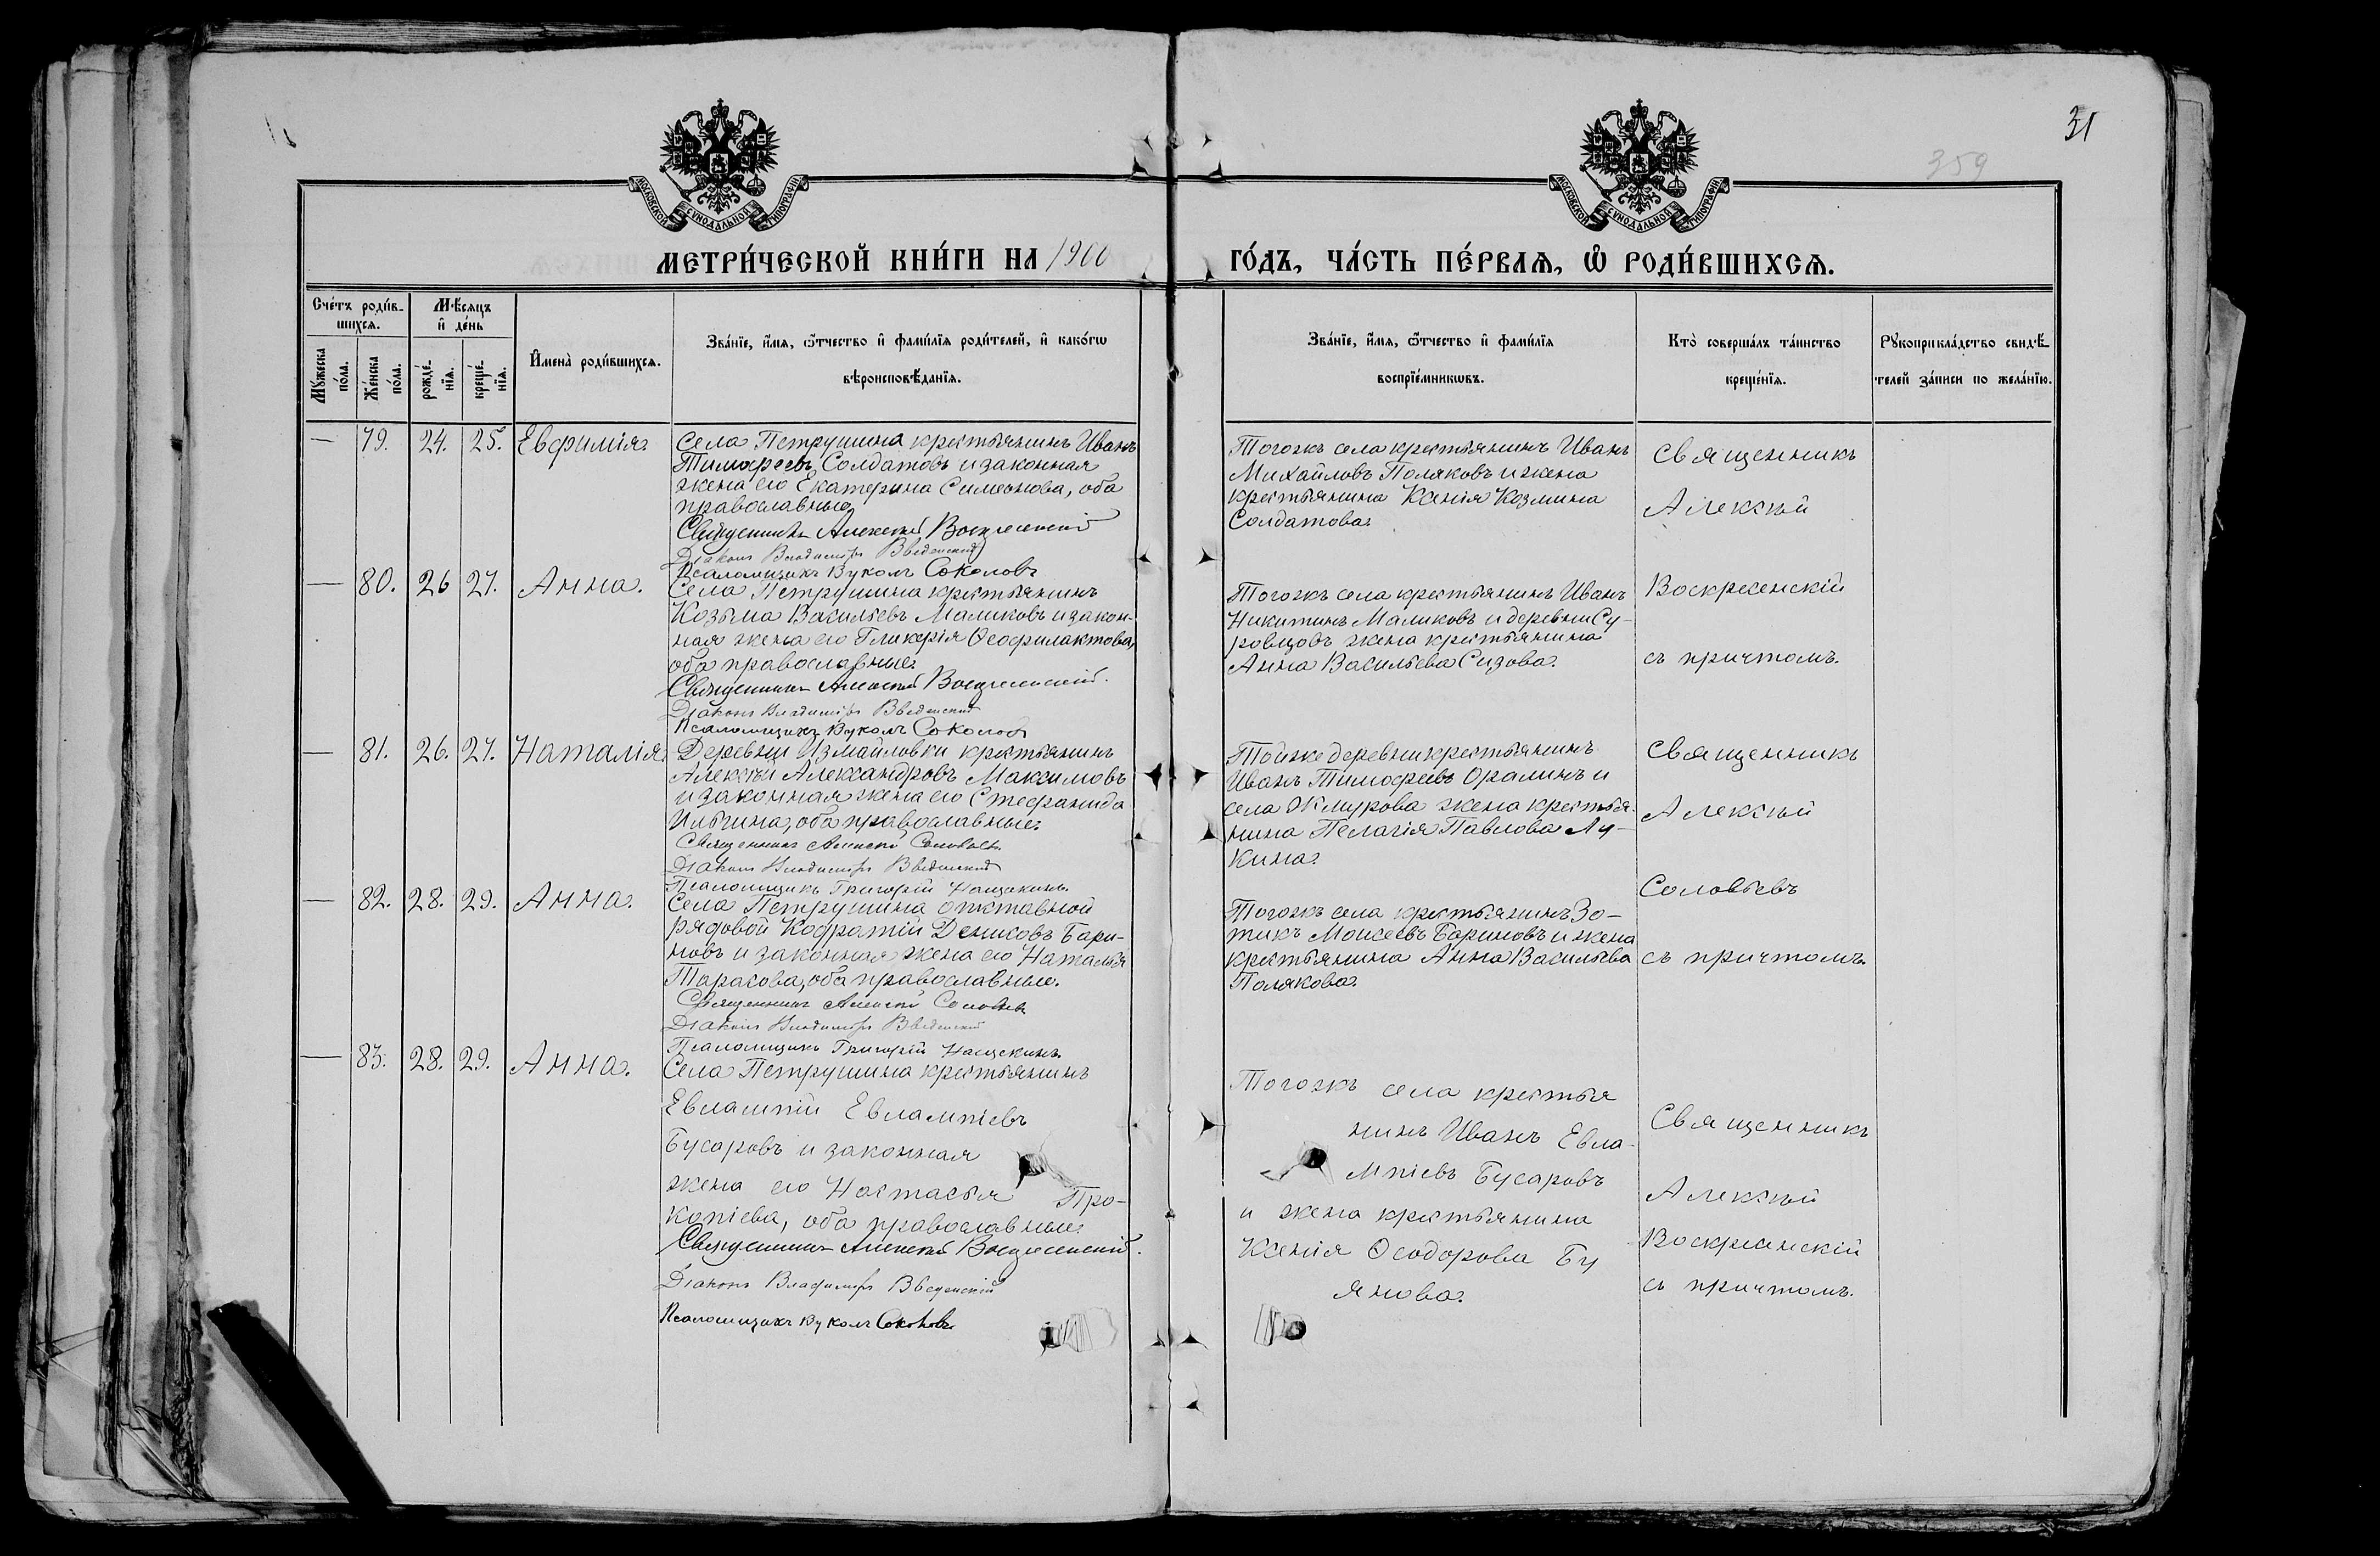 31
359
МОСКОВСКОЙ СѴНОДАЛЬНОЙ ТИПОГРАФІИ
МОСКОВСКОЙ СѴНОДАЛЬНОЙ ТИПОГРАФІИ
МЕТРИ́ЧЕСКОЙ КНИ́ГИ НА 1900
ГО́ДЪ, ЧА́СТЬ ПЕ́РВАѦ, Ѽ РОДИ́ВШИХСѦ.
Сче́тъ роди́в-
шихсѧ.
Мѣ́сѧцъ
и҆ де́нь
Мꙋ́жеска
по́ла.
Же́нска
по́ла.
рожде́-
нїѧ.
креще́-
нїѧ.
И҆мена̀ роди́вшихсѧ.
Зва́нїе, и҆́мѧ, ѻ҆́тчество и҆ фами́лїѧ роди́телей, и҆ како́гѡ
вѣроисповѣ́данїѧ.
Зва́нїе, и҆́мѧ, ѻ҆́тчество и҆ фами́лїѧ
воспрїе́мникѡвъ.
Кто̀ соверша́лъ та́инство
креще́нїѧ.
Рꙋкоприкла́дство свидѣ́-
телей за́писи по жела́нїю.
— 79. 24. 25. Евфимія.
Села Петрушина крестьянинъ Иванъ
Тимофеевъ Солдатовъ и законная
жена его Екатерина Симеонова, оба
православные
Священникъ Алексей Воскресенскій
Діаконъ Владимиръ Введенскій
Псаломщикъ Вуколъ Соколовъ
Тогожъ села крестьянинъ Иванъ
Михайловъ Поляковъ и жена
крестьянина Ксенія Козмина
Солдатова.
Священникъ
Алексѣй
Воскресенскій
съ причтомъ.
— 80. 26 27. Анна.
Села Петрушина крестьянинъ
Козьма Васильевъ Маликовъ и закон-
ная жена его Гликерія Ѳеофилактова,
оба православные.
Священникъ Алексей Воскресенскій.
Діаконъ Владимиръ Введенскій
Псаломщикъ Вуколъ Соколовъ
Тогожъ села крестьянинъ Иванъ
Никитинъ Маликовъ и деревни Су-
ровцовъ жена крестьянина
Анна Васильева Сизова.
— 81. 26. 27. Наталія.
Деревни Измайловки крестьянинъ
Алексѣй Александровъ Максимовъ
и законная жена его Стефанида
Ильина, оба православные.
Священникъ Алексей Соловьевъ
Діаконъ Владимиръ Введенскій
Псаломщикъ Григорій Нащекинъ.
Тойже деревни крестьянинъ
Иванъ Тимофеевъ Оралинъ и
села Жмурова жена крестья-
нина Пелагія Павлова Лу-
кина.
Священникъ
Алексѣй
Соловьевъ
съ причтомъ.
— 82. 28. 29. Анна.
Села Петрушина отставной
рядовой Кодратій Денисовъ Бари-
новъ и законная жена его Наталья
Тарасова, оба православные.
Священникъ Алексей Соловьевъ
Діаконъ Владимиръ Введенскій
Псаломщикъ Григорій Нащекинъ.
Тогожъ села крестьянинъ Зо-
тикъ Моисеевъ Бариновъ и жена
крестьянина Анна Васильева
Полякова.
— 83. 28. 29. Анна.
Села Петрушина крестьянинъ
Евлампій Евлампіевъ
Бусаровъ и законная
жена его Настасья Про-
копіева, оба православные.
Священникъ Алексей Воскресенскій.
Діаконъ Владимиръ Введенскій
Псаломщикъ Вуколъ Соколовъ
Тогожъ села крестья
нинъ Иванъ Евла-
мпіевъ Бусаровъ
и жена крестьянина
Ксенія Ѳеодорова Бу
янова.
Священникъ
Алексѣй
Воскресенскій
съ причтомъ.